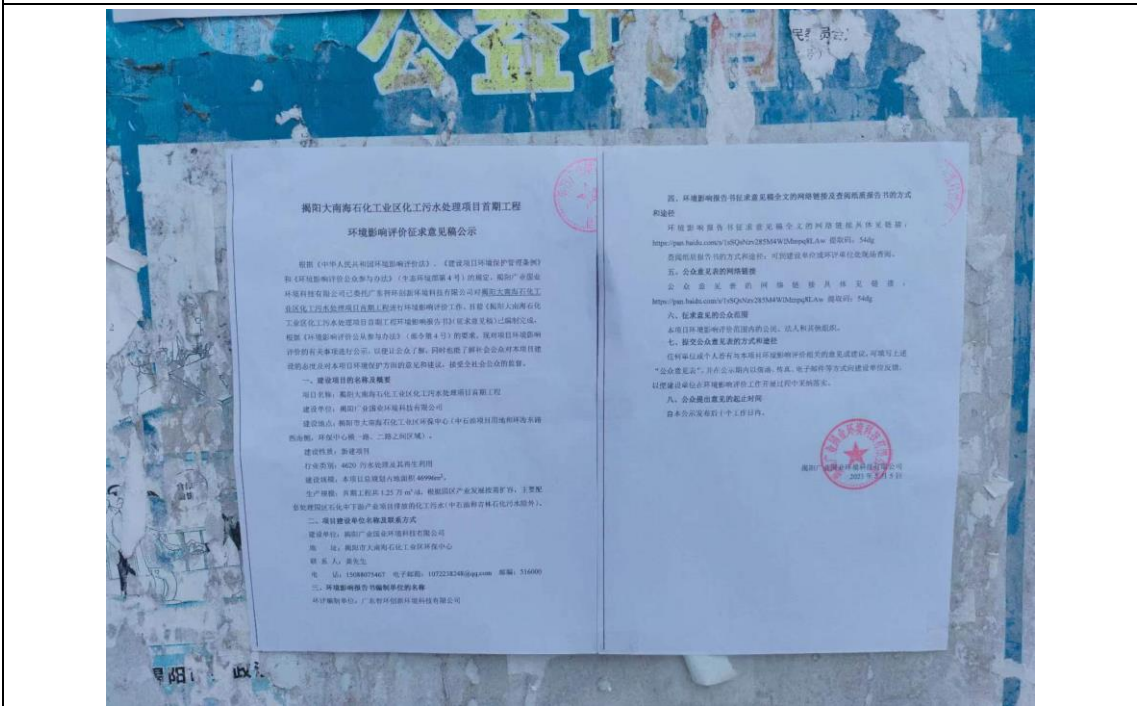 公益项目
揭阳大南海石化工业区化工污水处理项目首期工程
环境影响评价征求意见稿公示
根据《中华人民共和国环境影响评价法》、《建设项目环境保护管理条例》
和《环境影响评价公众参与办法》（生态环境部第4号）的规定，揭阳广业国业
环境科技有限公司已委托广东智环创新环境科技有限公司对揭阳大南海石化工
业区化工污水处理项目首期工程进行环境影响评价工作。目前《揭阳大南海石化
工业区化工污水处理项目首期工程环境影响报告书》（征求意见稿）已编制完成。
根据《环境影响评价公众参与办法》（部令第4号）的要求，现将项目环境影响
评价的有关事项进行公示，以便让公众了解，同时也能了解社会公众对本项目建
设的态度及对本项目环境保护方面的意见和建议，接受社会公众的监督。
一、建设项目的名称及概要
项目名称：揭阳大南海石化工业区化工污水处理项目首期工程
建设单位：揭阳广业国业环境科技有限公司
建设地点：揭阳市大南海石化工业区环保中心（中石油项目用地和环海东路
西南侧，环保中心横一路、二路之间区域）。
建设性质：新建项目
行业类别：4620 污水处理及其再生利用
建设规模：本项目总规划占地面积46996m²。
生产规模：首期工程共1.25万m³/d，根据园区产业发展按需扩容，主要配
套处理园区石化中下游产业项目排放的化工污水（中石油和吉林石化污水除外）。
二、项目建设单位名称及联系方式
建设单位：揭阳广业国业环境科技有限公司
地 址：揭阳市大南海石化工业区环保中心
联系人：黄先生
电 话：15088075467 电子邮箱：1072238248@qq.com 邮编：516000
三、环境影响报告书编制单位的名称
环评编制单位：广东智环创新环境科技有限公司
四、环境影响报告书征求意见稿全文的网络链接及查阅纸质报告书的方式
和途径
环境影响报告书征求意见稿全文的网络链接具体见链接：
提取码：54dg
查阅纸质报告书的方式和途径：可到建设单位或环评单位处现场查阅。
五、公众意见表的网络链接
公众意见表的网络链接具体见链接：
提取码：54dg
六、征求意见的公众范围
本项目环境影响评价范围内的公民、法人和其他组织。
七、提交公众意见表的方式和途径
任何单位或个人若有与本项目环境影响评价相关的意见或建议，可填写上述
“公众意见表”，并在公示期内以信函、传真、电子邮件等方式向建设单位反馈，
以便建设单位在环境影响评价工作开展过程中采纳落实。
八、公众提出意见的起止时间
自本公示发布后十个工作日内。
揭阳广业国业环境科技有限公司